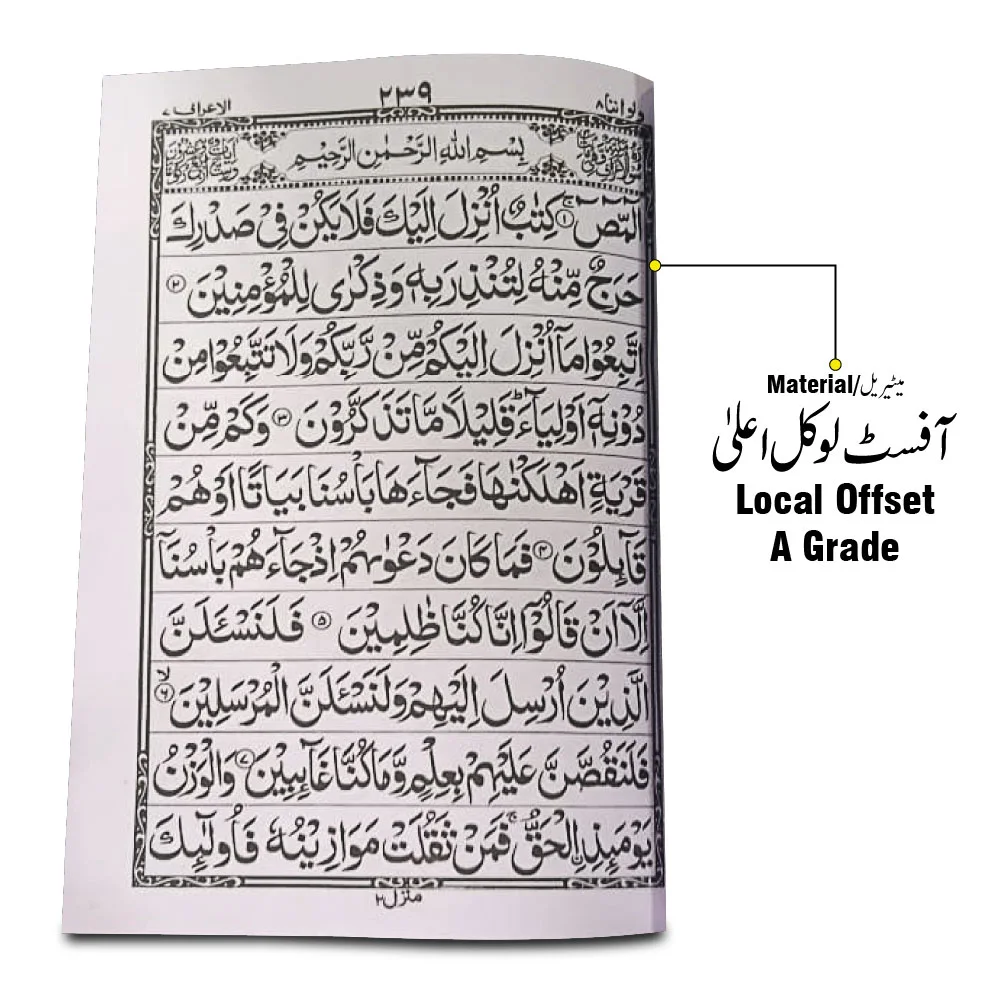 ولواننا ۸
۲۳۹
الاعراف ۷
بِسْمِ اللهِ الرَّحْمٰنِ الرَّحِيْمِ
الٓمّٓصٓ ۚ﴿۱﴾ كِتٰبٌ اُنْزِلَ اِلَيْكَ فَلَا يَكُنْ فِيْ صَدْرِكَ
حَرَجٌ مِّنْهُ لِتُنْذِرَ بِهٖ وَذِكْرٰى لِلْمُؤْمِنِيْنَ ﴿۲﴾
اِتَّبِعُوْا مَاۤ اُنْزِلَ اِلَيْكُمْ مِّنْ رَّبِّكُمْ وَلَا تَتَّبِعُوْا مِنْ
دُوْنِهٖۤ اَوْلِيَآءَ ؕ قَلِيْلًا مَّا تَذَكَّرُوْنَ ﴿۳﴾ وَكَمْ مِّنْ
قَرْيَةٍ اَهْلَكْنٰهَا فَجَآءَهَا بَاْسُنَا بَيَاتًا اَوْ هُمْ
قَآئِلُوْنَ ﴿۴﴾ فَمَا كَانَ دَعْوٰىهُمْ اِذْ جَآءَهُمْ بَاْسُنَاۤ
اِلَّاۤ اَنْ قَالُوْۤا اِنَّا كُنَّا ظٰلِمِيْنَ ﴿۵﴾ فَلَنَسْـَٔلَنَّ
الَّذِيْنَ اُرْسِلَ اِلَيْهِمْ وَلَنَسْـَٔلَنَّ الْمُرْسَلِيْنَ ۙ﴿۶﴾
فَلَنَقُصَّنَّ عَلَيْهِمْ بِعِلْمٍ وَّمَا كُنَّا غَآئِبِيْنَ ﴿۷﴾ وَالْوَزْنُ
يَوْمَئِذِ ۨالْحَقُّ ۚ فَمَنْ ثَقُلَتْ مَوَازِيْنُهٗ فَاُولٰٓئِكَ
منزل ۲
Material/میٹیریل
آفسٹ لوکل اعلیٰ
Local Offset
A Grade